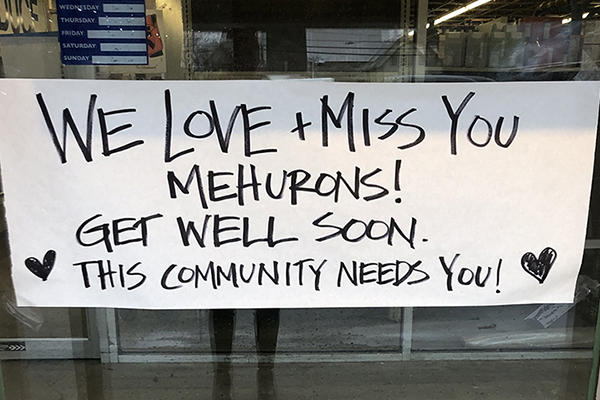 WEDNESDAY
THURSDAY
FRIDAY
SATURDAY
SUNDAY
WE LOVE + MISS YOU
MEHURONS!
GET WELL SOON.
THIS COMMUNITY NEEDS YOU!